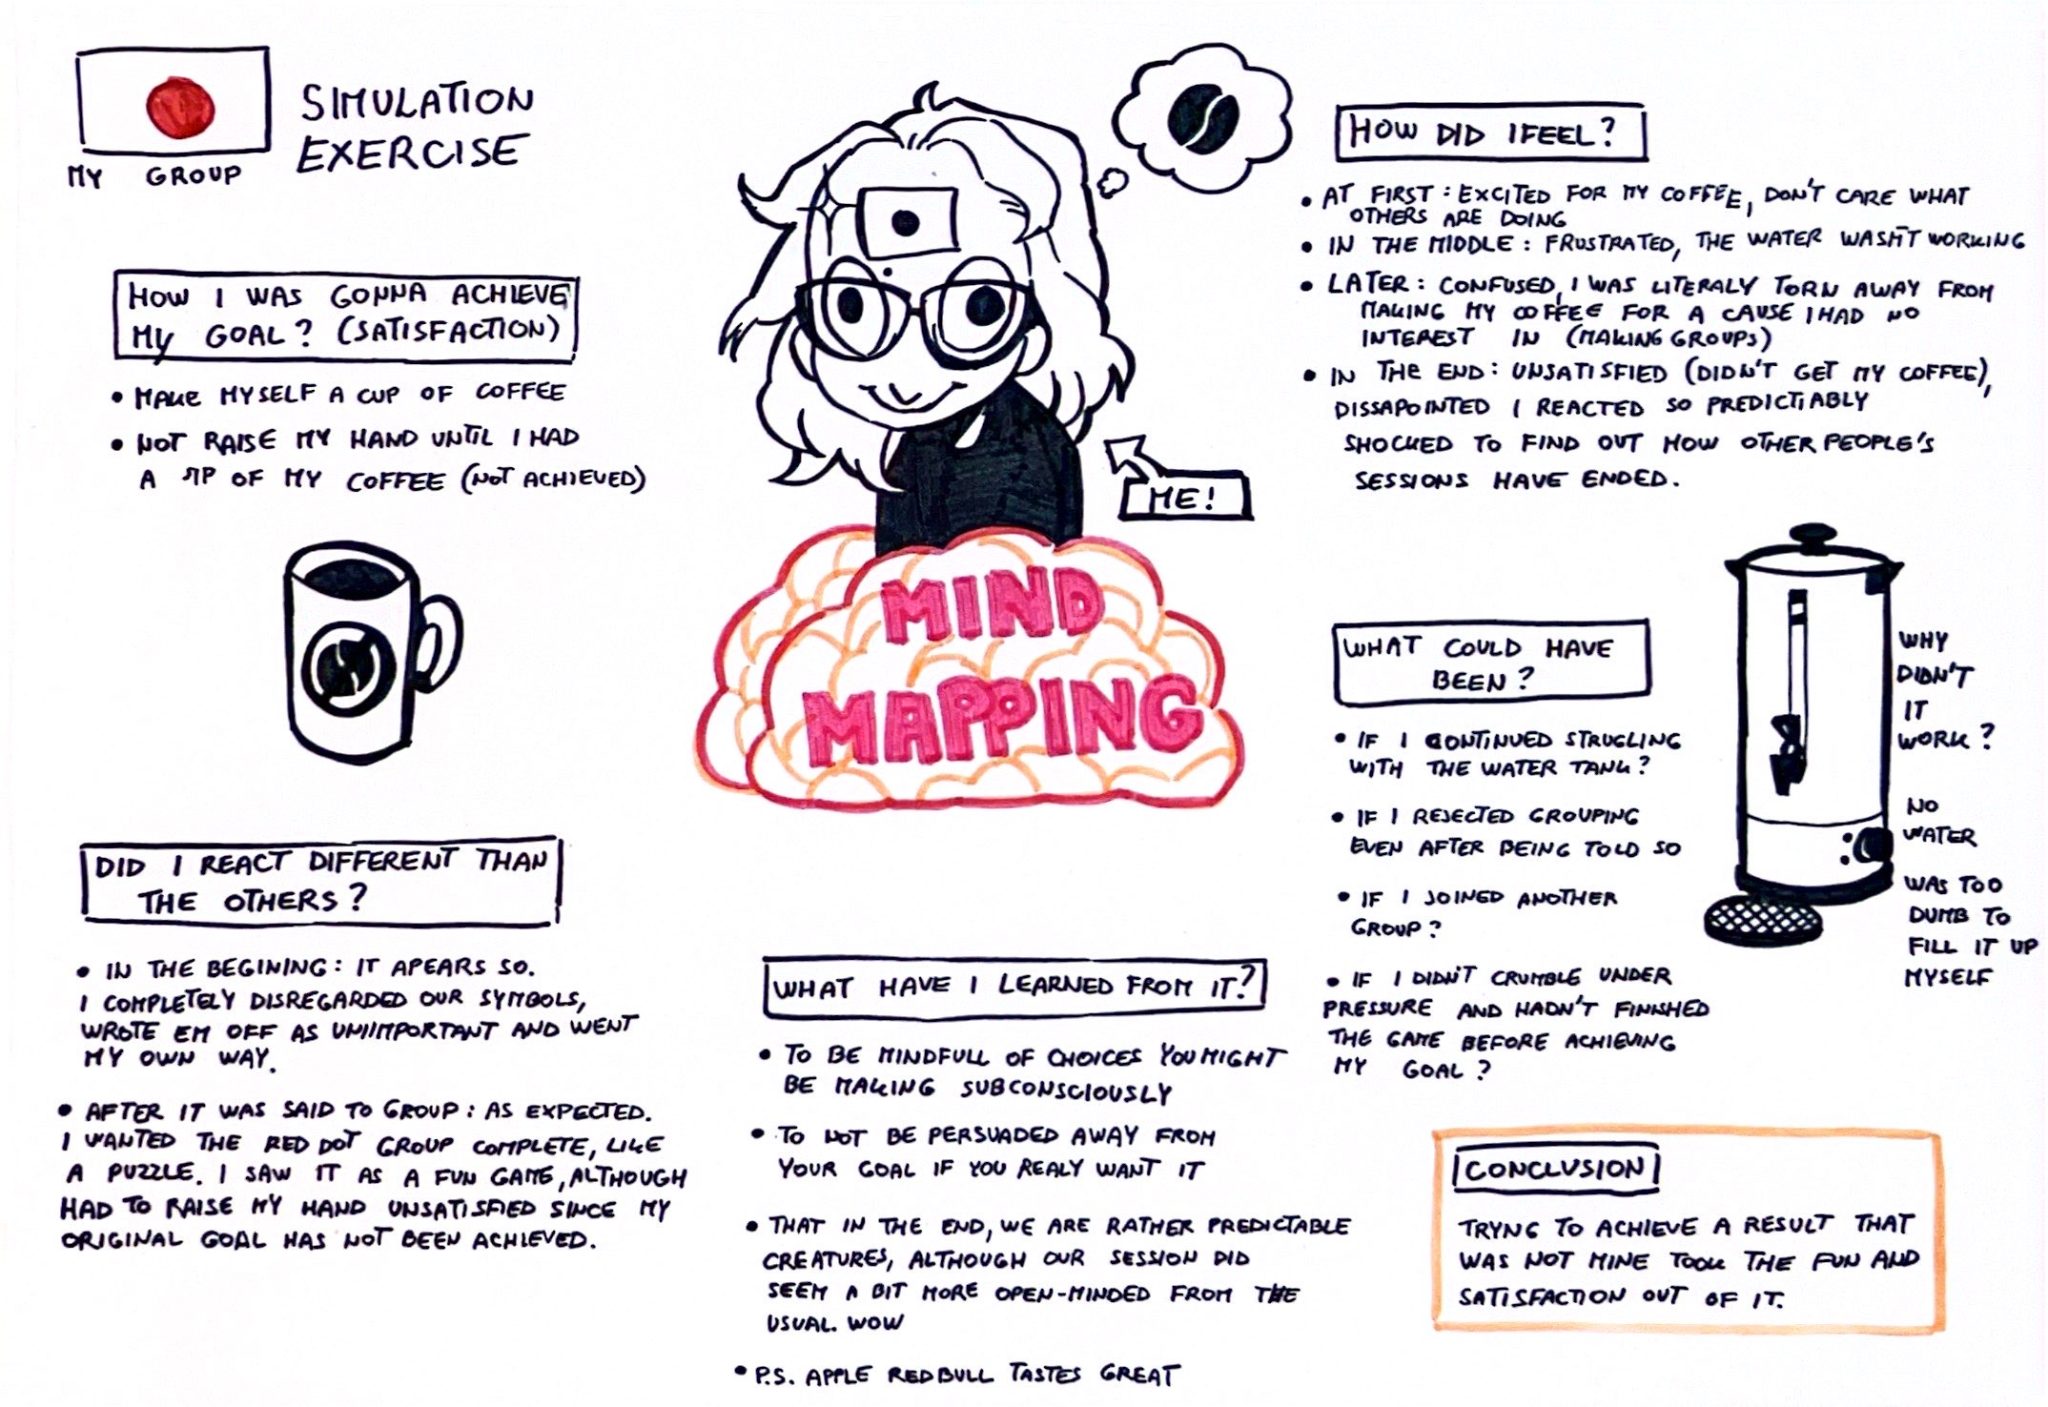 MY GROUP
SIMULATION
EXERCISE
HOW I WAS GONNA ACHIEVE
MY GOAL? (SATISFACTION)
• MAKE MYSELF A CUP OF COFFEE
• NOT RAISE MY HAND UNTIL I HAD
A SIP OF MY COFFEE (NOT ACHIEVED)
DID I REACT DIFFERENT THAN
THE OTHERS?
• IN THE BEGINING: IT APEARS SO.
I COMPLETELY DISREGARDED OUR SYMBOLS,
WROTE EM OFF AS UNIIMPORTANT AND WENT
MY OWN WAY.
• AFTER IT WAS SAID TO GROUP: AS EXPECTED.
I WANTED THE RED DOT GROUP COMPLETE, LIKE
A PUZZLE. I SAW IT AS A FUN GAME, ALTHOUGH
HAD TO RAISE MY HAND UNSATISFIED SINCE MY
ORIGINAL GOAL HAS NOT BEEN ACHIEVED.
ME!
MIND
MAPPING
WHAT HAVE I LEARNED FROM IT?
• TO BE MINDFULL OF CHOICES YOU MIGHT
BE MAKING SUBCONSCIOUSLY
• TO NOT BE PERSUADED AWAY FROM
YOUR GOAL IF YOU REALY WANT IT
• THAT IN THE END, WE ARE RATHER PREDICTABLE
CREATURES, ALTHOUGH OUR SESSION DID
SEEM A BIT MORE OPEN-MINDED FROM THE
USUAL. WOW
• P.S. APPLE REDBULL TASTES GREAT
HOW DID I FEEL?
• AT FIRST: EXCITED FOR MY COFFEE, DON'T CARE WHAT
OTHERS ARE DOING
• IN THE MIDDLE: FRUSTRATED, THE WATER WASN'T WORKING
• LATER: CONFUSED, I WAS LITERALY TORN AWAY FROM
MAKING MY COFFEE FOR A CAUSE I HAD NO
INTEREST IN (MAKING GROUPS)
• IN THE END: UNSATISFIED (DIDN'T GET MY COFFEE),
DISSAPOINTED I REACTED SO PREDICTIABLY
SHOCKED TO FIND OUT HOW OTHER PEOPLE'S
SESSIONS HAVE ENDED.
WHAT COULD HAVE
BEEN?
• IF I CONTINUED STRUGLING
WITH THE WATER TANK?
• IF I REJECTED GROUPING
EVEN AFTER BEING TOLD SO
• IF I JOINED ANOTHER
GROUP?
• IF I DIDN'T CRUMBLE UNDER
PRESSURE AND HADN'T FINISHED
THE GAME BEFORE ACHIEVING
MY GOAL?
WHY
DIDN'T
IT
WORK?
NO
WATER
WAS TOO
DUMB TO
FILL IT UP
MYSELF
CONCLUSION
TRYNG TO ACHIEVE A RESULT THAT
WAS NOT MINE TOOK THE FUN AND
SATISFACTION OUT OF IT.